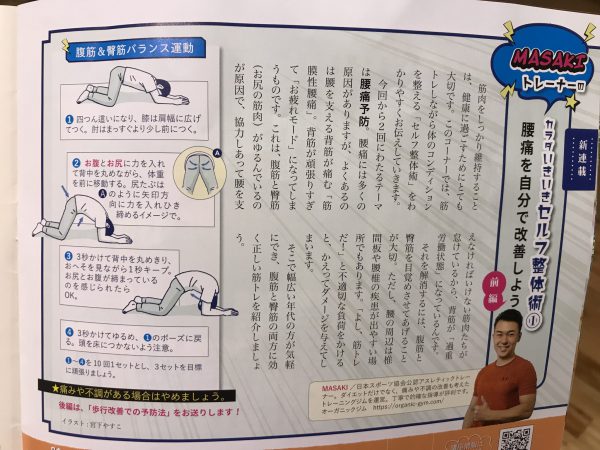 MASAKI
トレーナーの
新連載
カラダいきいきセルフ整体術①
腰痛を自分で改善しよう
前編
筋肉をしっかり維持すること
は、健康に過ごすためにとても
大切です。このコーナーでは、筋
トレしながら体のコンディション
を整える「セルフ整体術」をわ
かりやすくお伝えしていきます。
今回から2回にわたるテーマ
は腰痛予防。腰痛には多くの
原因がありますが、よくあるの
は腰を支える背筋が痛む「筋
膜性腰痛」。背筋が頑張りすぎ
て「お疲れモード」になってしま
うものです。これは、腹筋と臀筋
（お尻の筋肉）がゆるんでいるの
が原因で、協力しあって腰を支
えなければいけない筋肉たちが
怠けているから、背筋が〝過重
労働状態〟になっているんです。
それを解消するには、腹筋と
臀筋を目覚めさせてあげること
が大切。ただし、腰の周辺は椎
間板や腰椎の疾患が出やすい場
所でもあります。「よし、筋トレ
だ！」と不適切な負荷をかける
と、かえってダメージを与えてし
まいます。
そこで幅広い年代の方が気軽
にでき、腹筋と臀筋の両方に効
く正しい筋トレを紹介しましょ
う。
腹筋＆臀筋バランス運動
❶四つん這いになり、膝は肩幅に広げ
てつく。肘はまっすぐより少し前につく。
❷お腹とお尻に力を入れ
て背中を丸めながら、体重
を前に移動する。尻たぶは
Ⓐのように矢印方
向に力を入れひき
締めるイメージで。
A
❸3秒かけて背中を丸めきり、
おへそを見ながら1秒キープ。
お尻とお腹が締まっている
のを感じられたら
OK。
❹3秒かけてゆるめ、❶のポーズに戻
る。頭を床につかないよう注意。
❶~❹を10回1セットとし、3セットを目標
に頑張りましょう。
★痛みや不調がある場合はやめましょう。
後編は、「歩行改善での予防法」をお送りします！
イラスト：宮下やすこ
MASAKI／日本スポーツ協会公認アスレティックトレー
ナー。ダイエットだけでなく、痛みや不調の改善も考えた
トレーニングジムを運営。丁寧で的確な指導が評判です。
オーガニックジム https://organic-gym.com/